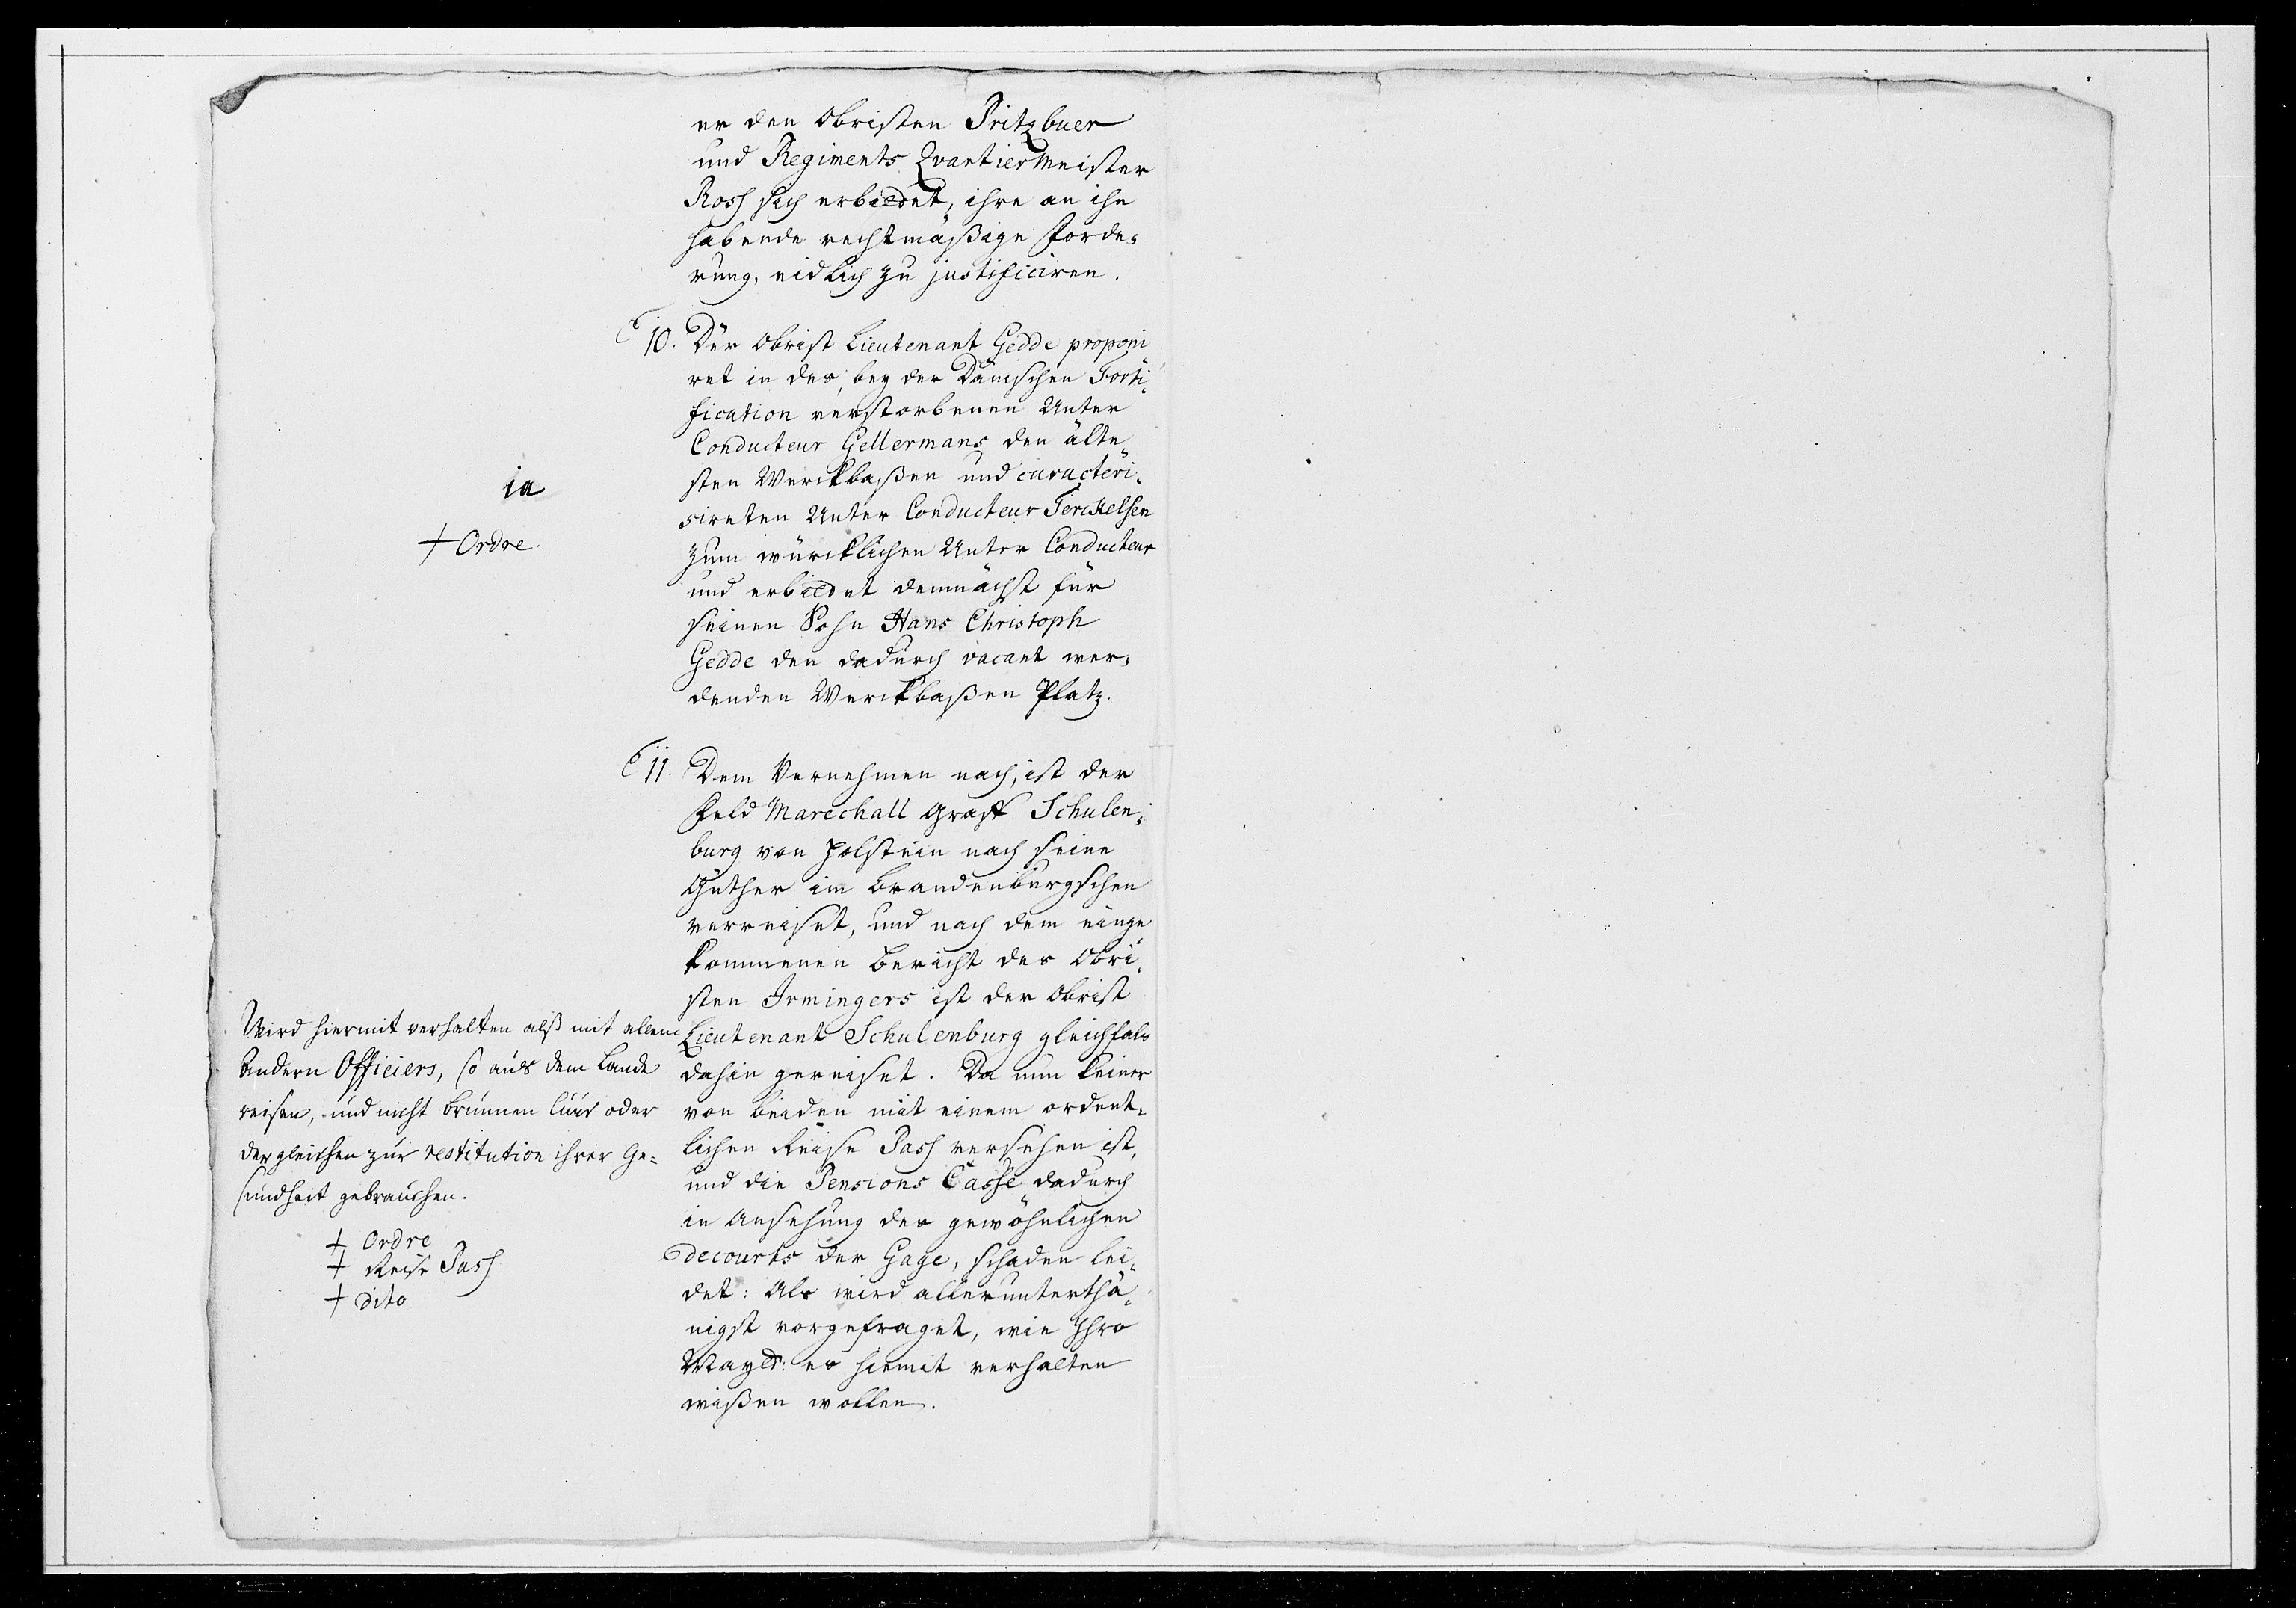 er den Obristen Pritzbuer
und Regiments Qvartiermeister
Ross sich erbiedet, ihre an ihn
habende rechtmäßige Forde-
rung, eidlich zu justificiren.
10. Der Obrist Lieutenant Gedde proponi
ret in des, bey der Dänischen Forti-
fication verstorbenen Unter
Conducteur Gellermans den älte-
sten Werckbaßen und caracteri-
sireten Unter Conducteur Terckelsen
zum würcklichen Unter Conducteur
und erbiedet demnächst für
seinen Sohn Hans Christoph
Gedde den dadurch vacant wer-
denden Werckbaßen Platz.
ia
+ Ordre.
11. Dem Vernehmen nach, ist der
Feld Marechall Graff Schulen-
burg von Holstein nach seine
Güther im Brandenburgschen
verreiset, und nach dem einge
kommenen Bericht des Obri-
sten Irmingers ist der Obrist
Lieutenant Schulenburg gleichfals
dahin gereiset. Da nun keiner
von beiden mit einem ordent-
lichen Reise Pass versehen ist,
und die Pensions Casse dadurch
in Ansehung des gewöhnlichen
decourts der Gage, schaden lei-
det: Als wird allerunterthä-
nigst vorgefraget, wie Ihro
Mayts: es hiemit verhalten
wißen wollen.
Wird hiermit verhalten alß mit allen
Andern Officiers, so aus dem Lande
reisen, und nicht brunnen Cuur oder
dergleichen zur restitution ihrer Ge-
sundheit gebrauchen.
+ Ordre
+ Reise Pass
+ dito